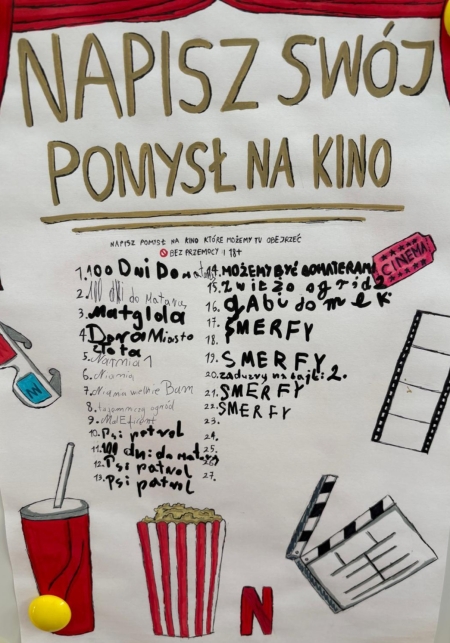 NAPISZ SWÓJ
POMYSŁ NA KINO
NAPISZ POMYSŁ NA KINO KTÓRE MOŻEMY TU OBEJRZEĆ
BEZ PRZEMOCY I 18+
1. 100 Dni Do matury
2. 100 dni do Matury
3. Matylda
4. Dora Miasto
złota
5. Narnia 1
6. Niania
7. Niania wielkie Bum
8. tajemniczy ogród
9. Maleficent
10. Psi patrol
11. 100 dni do Matury
12. Psi patrol
13. Psi patrol
14. MOŻEMY BYĆ BOHATERAMI
15.
16. gabi domek
17. SMERFY
18.
19. SMERFY
20. 2.
21. SMERFY
22. SMERFY
23.
24.
25.
26.
27.
CINEMA
N
N